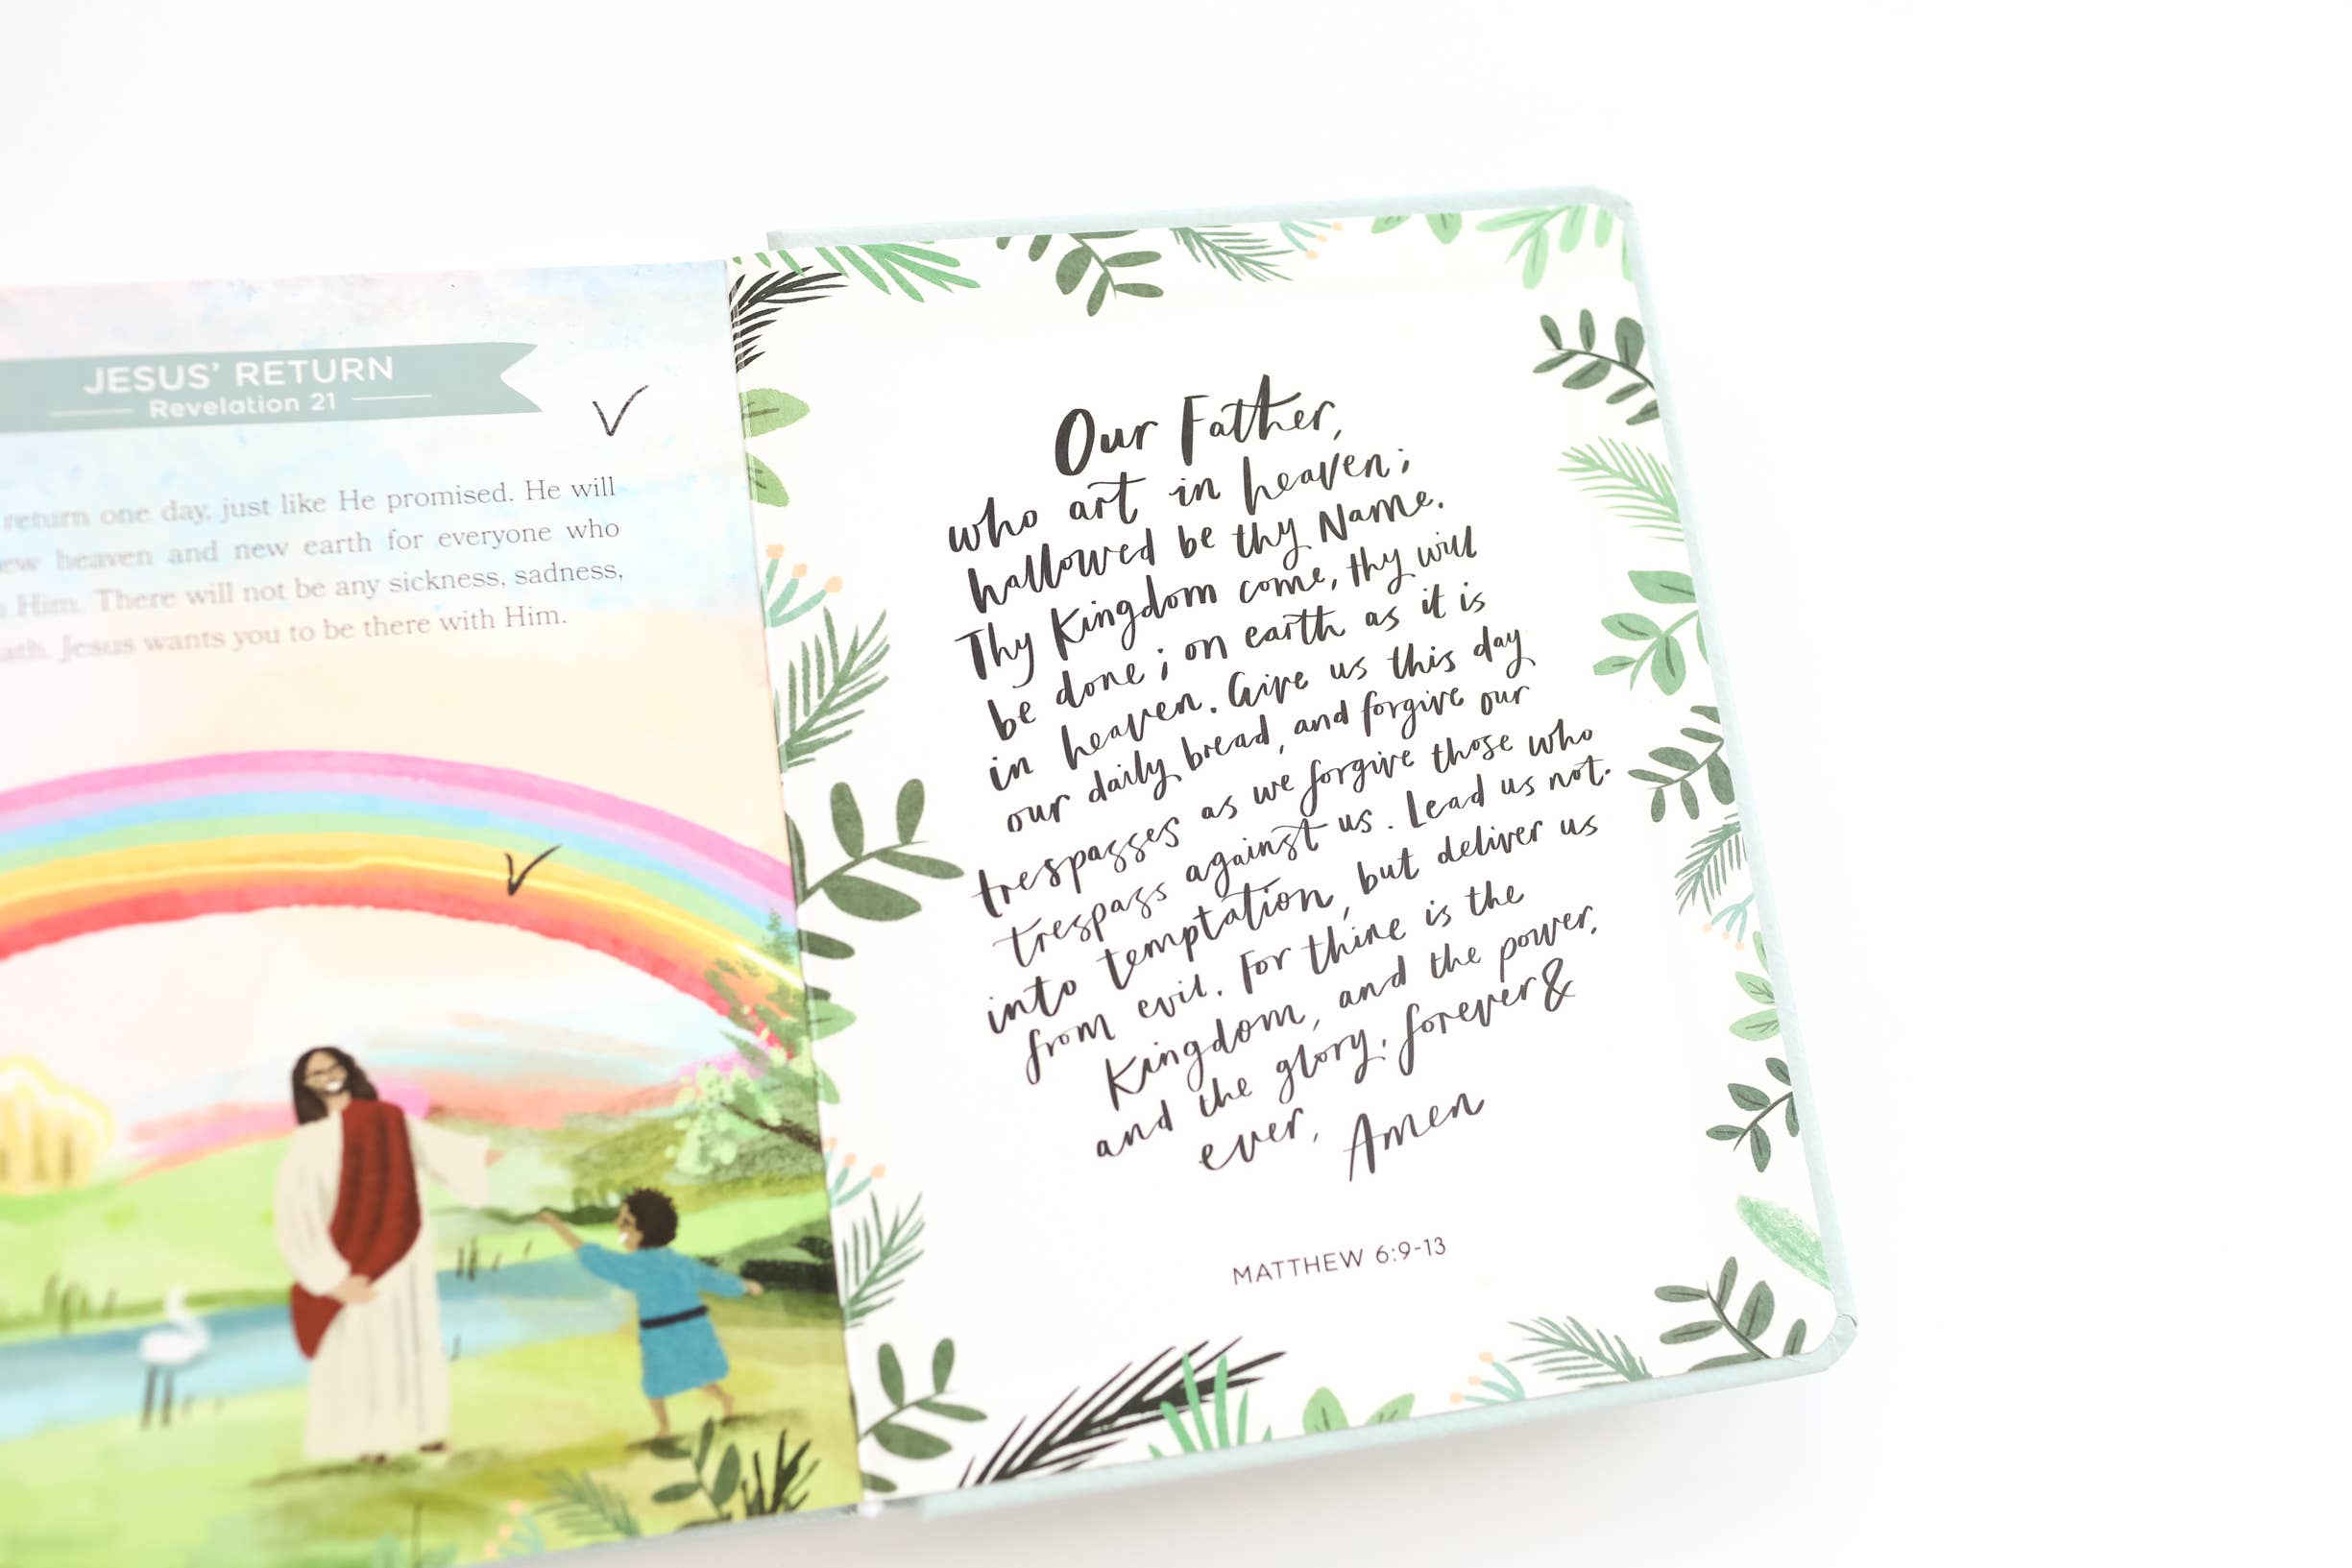 JESUS' RETURN
Revelation 21
return one day, just like He promised. He will
heaven and new earth for everyone who
Him. There will not be any sickness, sadness,
Jesus wants you to be there with Him.
Our Father,
who art in heaven;
hallowed be thy Name.
Thy Kingdom come, thy will
be done; on earth as it is
in heaven. Give us this day
our daily bread, and forgive our
trespasses as we forgive those who
trespass against us. Lead us not.
into temptation, but deliver us
from evil. For thine is the
Kingdom, and the power,
and the glory, forever &
ever, Amen
MATTHEW 6:9-13